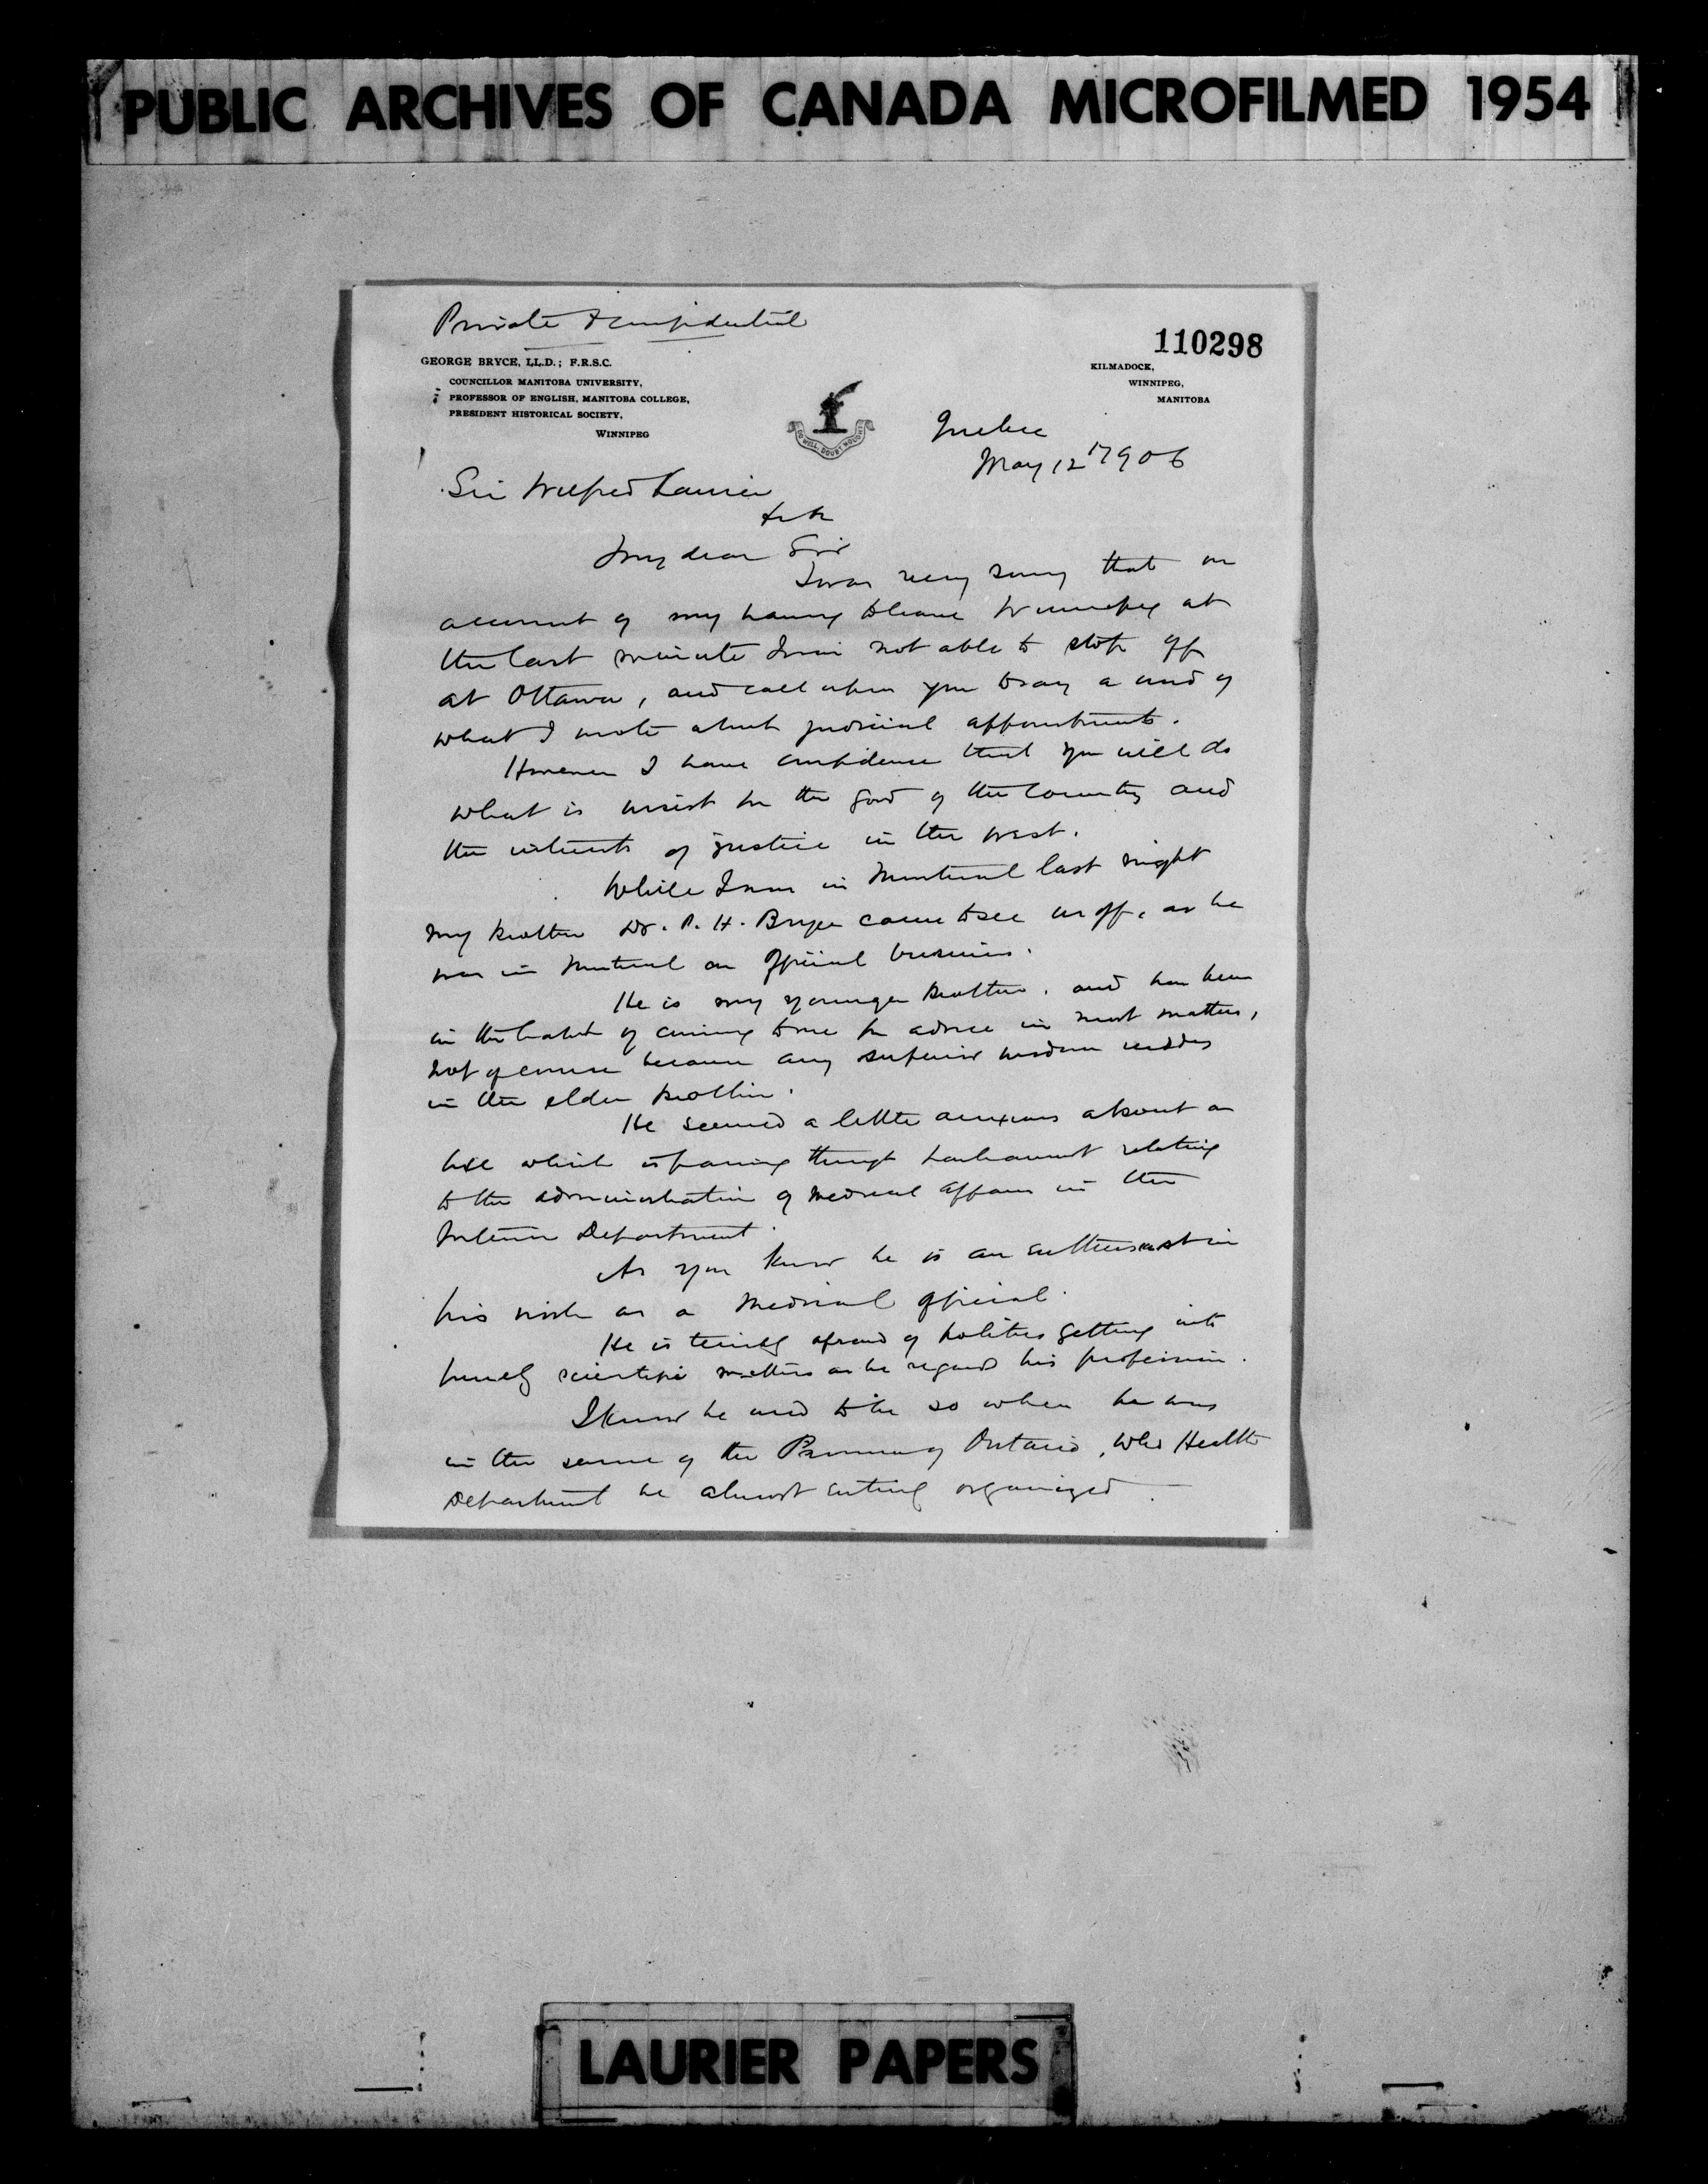 PUBLIC ARCHIVES OF CANADA MICROFILMED 1954
Private & Confidential
110298
GEORGE BRYCE, LL.D.; F.R.S.C.
COUNCILLOR MANITOBA UNIVERSITY,
PROFESSOR OF ENGLISH, MANITOBA COLLEGE,
PRESIDENT HISTORICAL SOCIETY,
WINNIPEG
KILMADOCK,
WINNIPEG,
MANITOBA
DO WELL, DOUBT NOUGHT
Quebec
May 12 1906
Sir Wilfred Laurier
My dear Sir
I was very sorry that on
account of my having to leave Winnipeg at
the last minute I was not able to stop off
at Ottawa, and call upon you to say a word of
what I wrote about judicial appointments.
However I have confidence that you will do
what is wisest for the good of the country and
the interests of justice in the west.
While I was in Montreal last night
my brother Dr. P. H. Bryce came to see us off, as he
was in Montreal on official business.
He is my younger brother, and has been
in the habit of coming to me for advice in most matters,
not of course because any superior wisdom resides
in the elder brother.
He seemed a little anxious about a
bill which is passing through Parliament relating
to the administration of medical affairs in the
Interior Department.
As you know he is an enthusiast in
his work as a medical official.
He is terribly afraid of politics getting into
purely scientific matters as he regards his profession.
I know he used to be so when he was
in the service of the Province of Ontario, who Health
Department he almost entirely organized.
LAURIER PAPERS